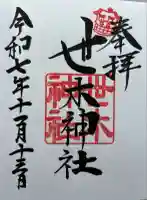 奉拝
世木神社
世木
神社
令和七年十一月十三日